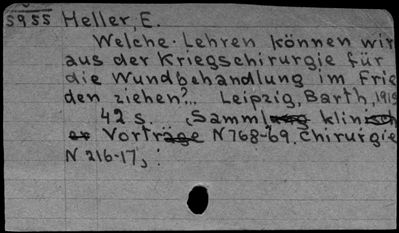 5955 Heller, E.
Welche Lehren können wir
aus der Kriegschirurgie für
die Wundbehandlung im Frie
den ziehen?... Leipzig, Barth, 1919
42 s. (Samml klin
Vortr N768-69, Chirurgie
N 216-17)